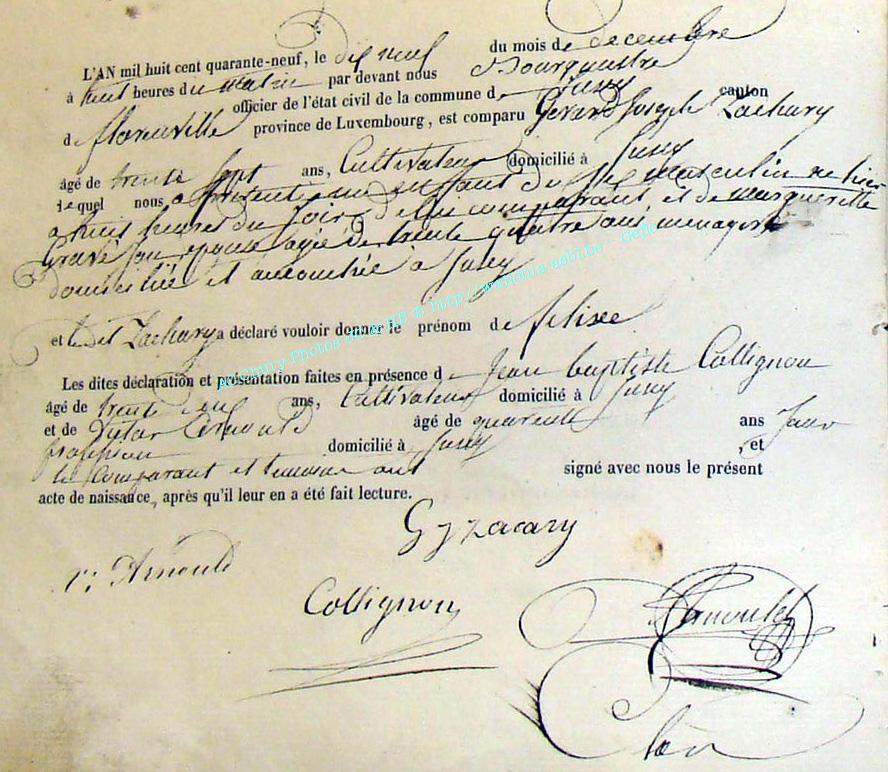 L'AN mil huit cent quarante-neuf, le dix neuf du mois de decembre
à huit heures du matin par devant nous Bourgmestre
officier de l'état civil de la commune de Jusy canton
de florenville province de Luxembourg, est comparu Gerard Joseph Zachary
âgé de trente sept ans, Cultivateur domicilié à Jusy
lequel nous a présenté un enfant du sexe masculin né hier
à huit heures du soir, de lui comparant, et de marguerite
son épouse agée de trente quatre ans menagere
domiciliée et accouchée à Jusy
et le dit Zachary a déclaré vouloir donner le prénom de félisée
Les dites déclaration et présentation faites en présence de Jean baptiste Collignon
âgé de trente neuf ans, Cultivateur domicilié à Jusy
et de Arnould âgé de quarante ans sans
profession domicilié à Jusy, et
le Comparant et temoins ont signé avec nous le présent
acte de naissance, après qu'il leur en a été fait lecture.
G J Zacary
Arnould
Collignon